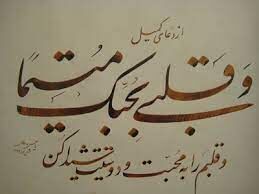 از دعای کمیل
وَ قَلبی بِحُبِّکَ مُتَیَّماً
و قلبم را به محبت و دوستیت شیدا کن